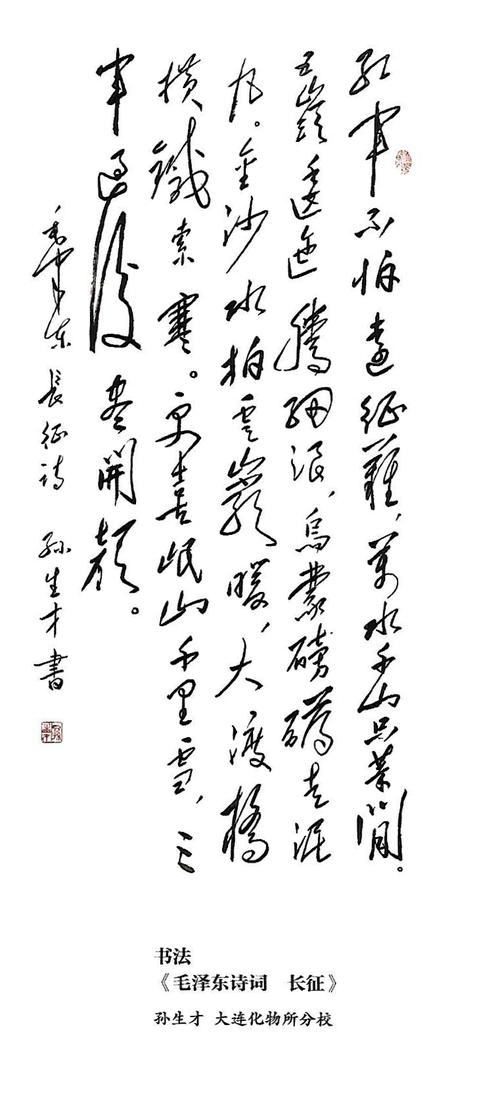 紅軍不怕遠征難，萬水千山只等閒。
五嶺逶迤騰細浪，烏蒙磅礴走泥
丸。金沙水拍雲巖暖，大渡橋
横鐵索寒。更喜岷山千里雪，三
軍過後盡開顔。
毛澤東 長征詩 孫生才書
书法
《毛泽东诗词 长征》
孙生才 大连化物所分校